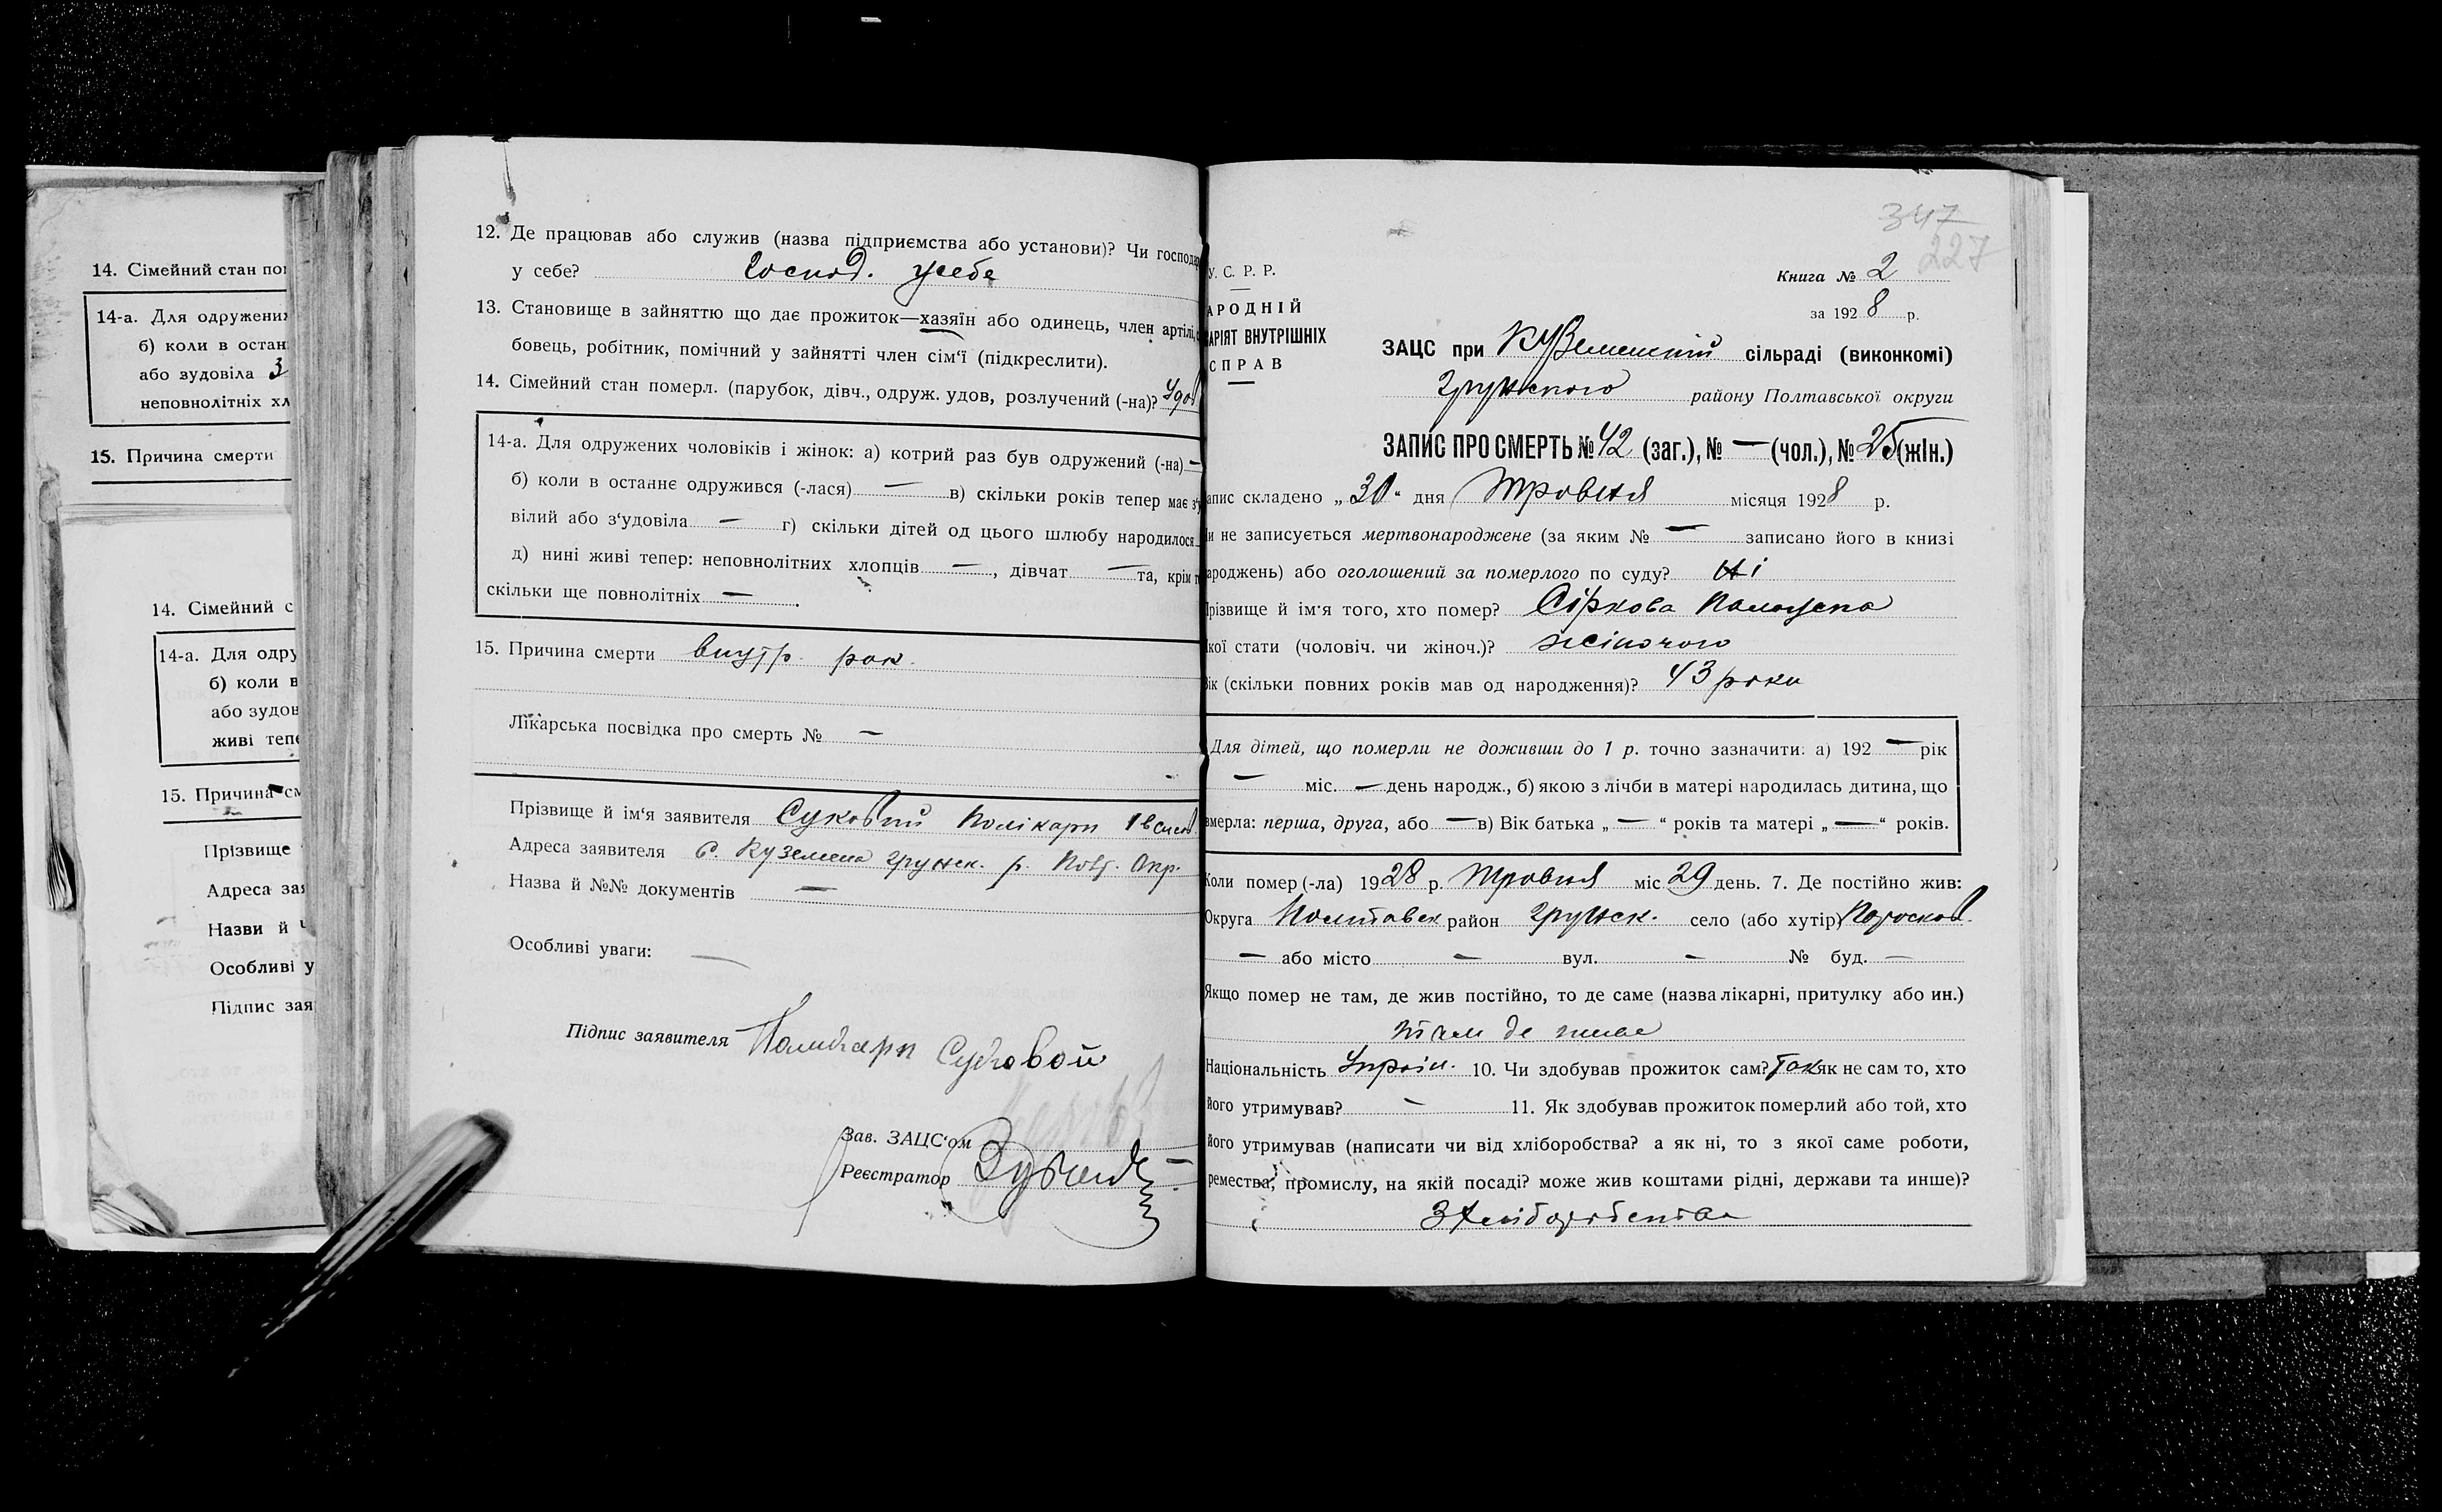 14. Сімейний стан
14-а. Для одружених
б) коли в остан
або зудовіла З
неповнолітніх хл
15. Причина смерти
14. Сімейний с
14-а. Для одру
б) коли в
або зудов
живі тепе
15. Причина см
Прізвище
Адреса зая
Назви й
Особливі у
Підпис зая
12. Де працював або служив (назва підприємства або установи)? Чи господар
у себе? Господ. у себе
13. Становище в зайняттю що дає прожиток—хазяїн або одинець, член артілі,
бовець, робітник, помічний у зайнятті член сім'ї (підкреслити).
14. Сімейний стан померл. (парубок, дівч., одруж. удов, розлучений (-на)? Удов
14-а. Для одружених чоловіків і жінок: а) котрий раз був одружений (-на) —
б) коли в останнє одружився (-лася) — в) скільки років тепер має з'у
вілий або з'удовіла — г) скільки дітей од цього шлюбу народилося
д) нині живі тепер: неповнолітних хлопців —, дівчат — та, крім т
скільки ще повнолітніх —.
15. Причина смерти внутр. рак.
Лікарська посвідка про смерть № —
Прізвище й ім'я заявителя Суковий Полікарп
Адреса заявителя с. Куземена грунск. р. Полт. Окр.
Назва й №№ документів —
Особливі уваги: —
Підпис заявителя Поликарп Суковой
Зав. ЗАЦС'ом
Реєстратор
347
227
У. С. Р. Р.
АРОДНІЙ
АРІЯТ ВНУТРІШНІХ
СПРАВ
Книга № 2
за 1928 р.
ЗАЦС при Куземенській сільраді (виконкомі)
Грунського району Полтавської округи
ЗАПИС ПРО СМЕРТЬ № 42 (заг.), № — (чол.), № 25 (жін.)
апис складено „30“ дня Травня місяця 1928 р.
и не записується мертвонароджене (за яким № — записано його в книзі
ароджень) або оголошений за померлого по суду? Ні
різвище й ім'я того, хто помер? Сіркова
кої стати (чоловіч. чи жіноч.)? жіночого
ік (скільки повних років мав од народження)? 43 роки
Для дітей, що померли не доживши до 1 р. точно зазначити: а) 192 — рік
— міс. — день народж., б) якою з лічби в матері народилась дитина, що
вмерла: перша, друга, або — в) Вік батька „ — “ років та матері „ — “ років.
Коли помер (-ла) 1928 р. Травня міс 29 день. 7. Де постійно жив:
Округа Полтавск район Грунск. село (або хутір)
— або місто — вул. — № буд. —
Якщо помер не там, де жив постійно, то де саме (назва лікарні, притулку або ин.)
там де жила
Національність Україн. 10. Чи здобував прожиток сам? Так як не сам то, хто
його утримував? — 11. Як здобував прожиток померлий або той, хто
його утримував (написати чи від хліборобства? а як ні, то з якої саме роботи,
ремества, промислу, на якій посаді? може жив коштами рідні, держави та инше)?
З хліборобства